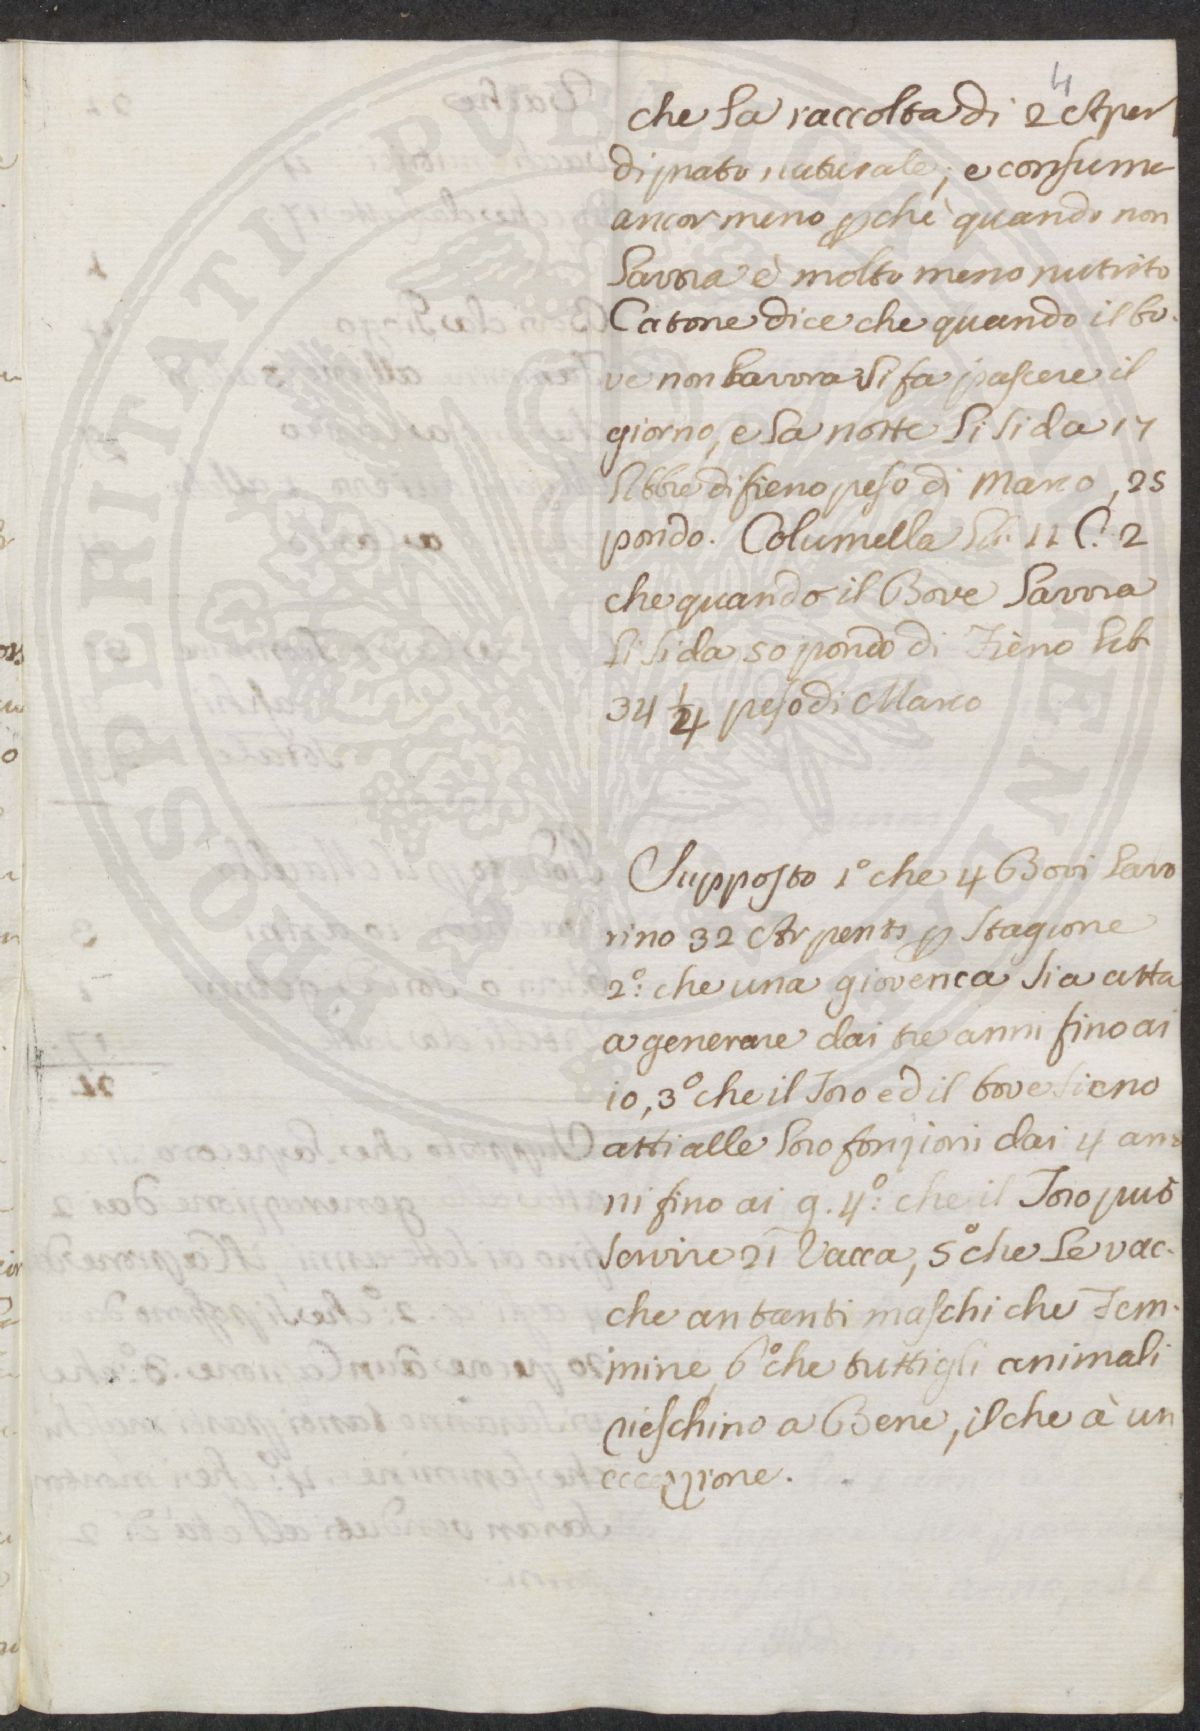 4
che la raccolta di 2 Arpen
di prato naturale, e consuma
ancor meno pche quando non
lavora è molto meno nutrito
Catone dice che quando il bo-
ve non lavora si fa pascere il
giorno, e la notte li si da 17
libbre di fieno peso di Marco, 25
pondo. Columella Lib. 11 C. 2
che quando il Bove lavora
li si da 50 pondo di Fieno Lib
34 1/4 peso di Marco
Supposto 1° che 4 Bovi lavo
rino 32 Arpenti p Stagione
2°: che una giovenca sia atta
a generare dai tre anni fino ai
10, 3° che il Toro ed il bove sieno
atti alle loro fonzioni dai 4 an
ni fino ai 9. 4°: che il Toro può
servire 21 Vacca, 5° che le vac-
che an tanti maschi che Fem-
mine, 6° che tutti gli animali
rieschino a Bene, il che à un
eccezzione.
PROSPERITATI PVBLICAE